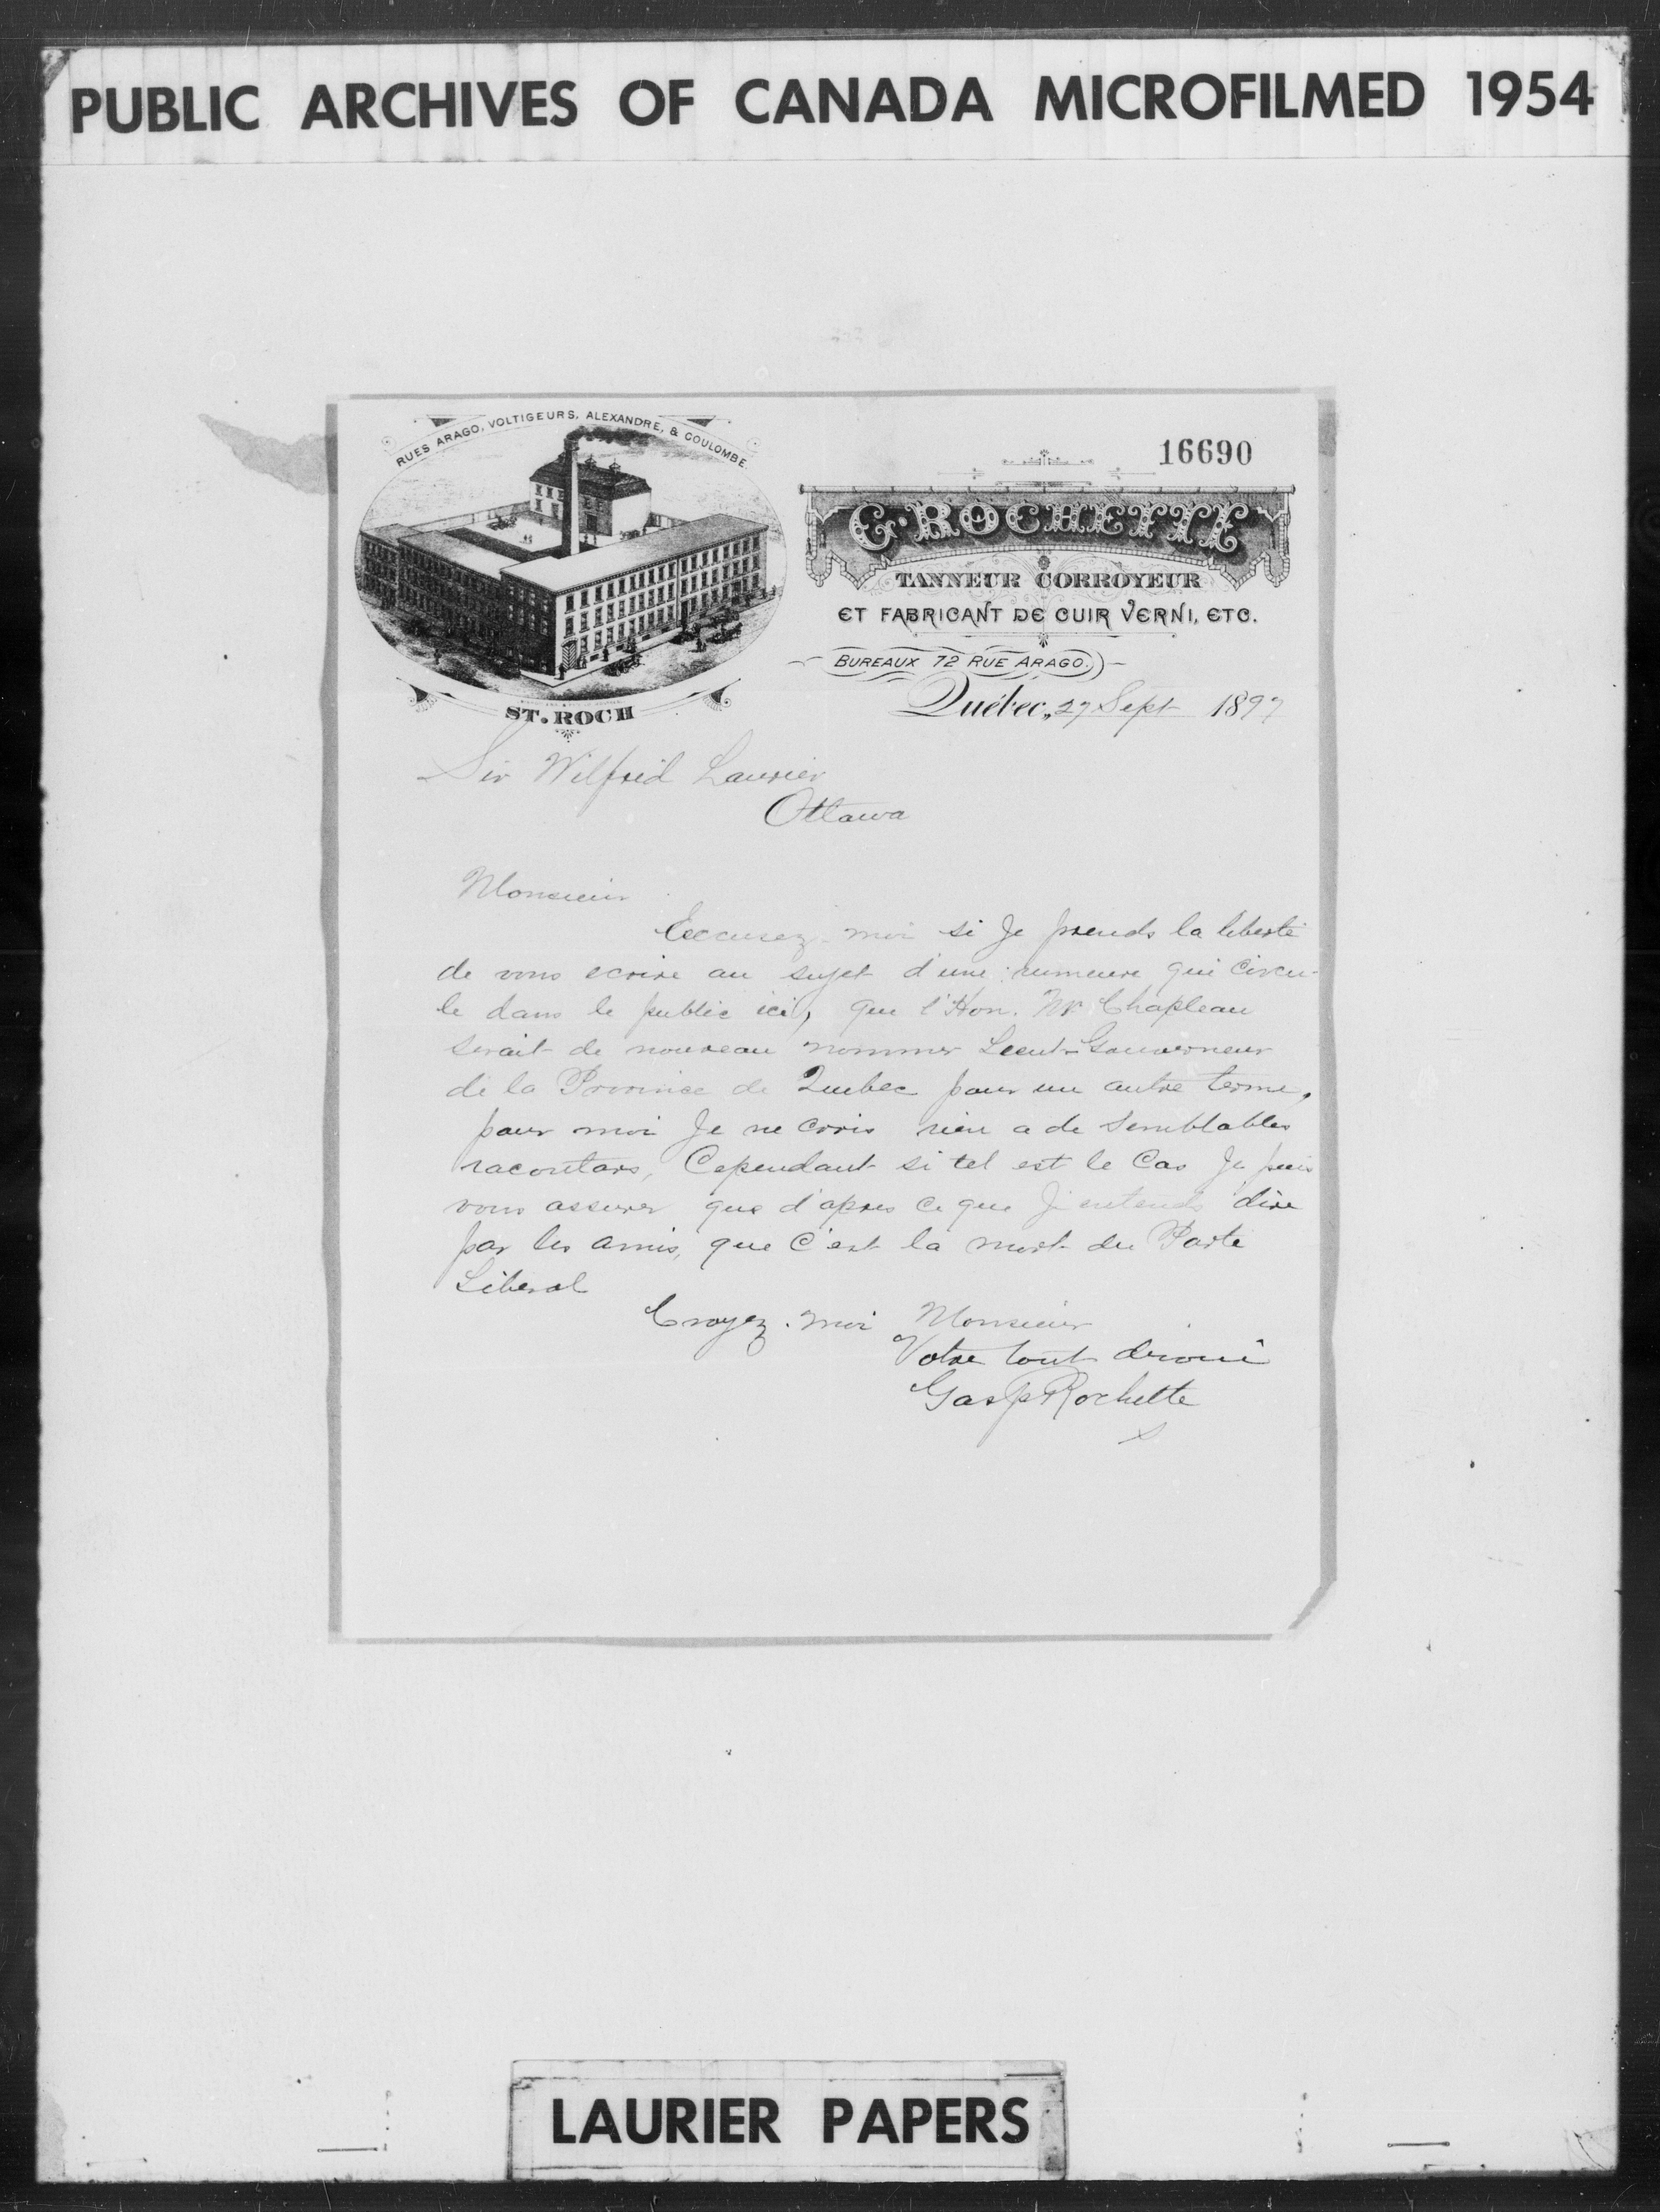 PUBLIC ARCHIVES OF CANADA MICROFILMED 1954
RUES ARAGO, VOLTIGEURS, ALEXANDRE, & COULOMBE
ST. ROCH
16690
G. ROCHETTE
TANNEUR CORROYEUR
ET FABRICANT DE CUIR VERNI, ETC.
BUREAUX 72 RUE ARAGO.
Québec, 27 Sept 1897
Sir Wilfrid Laurier
Ottawa
Monsieur
Excusez-moi si Je prends la liberté
de vous ecrire au sujet d'une rumeure qui circu-
le dans le public ici, que l'Hon. Mr Chapleau
serait de nouveau nommer Lieut-Gouverneur
de la Province de Quebec pour un autre terme,
pour moi Je ne crois rien a de semblables
racontars, Cependant si tel est le Cas Je puis
vous assurer que d'apres ce que J'entends dire
par les amis, que C'est la mort du Parte
Liberal
Croyez-moi Monsieur
Votre tout devoué
Gasp Rochette
LAURIER PAPERS